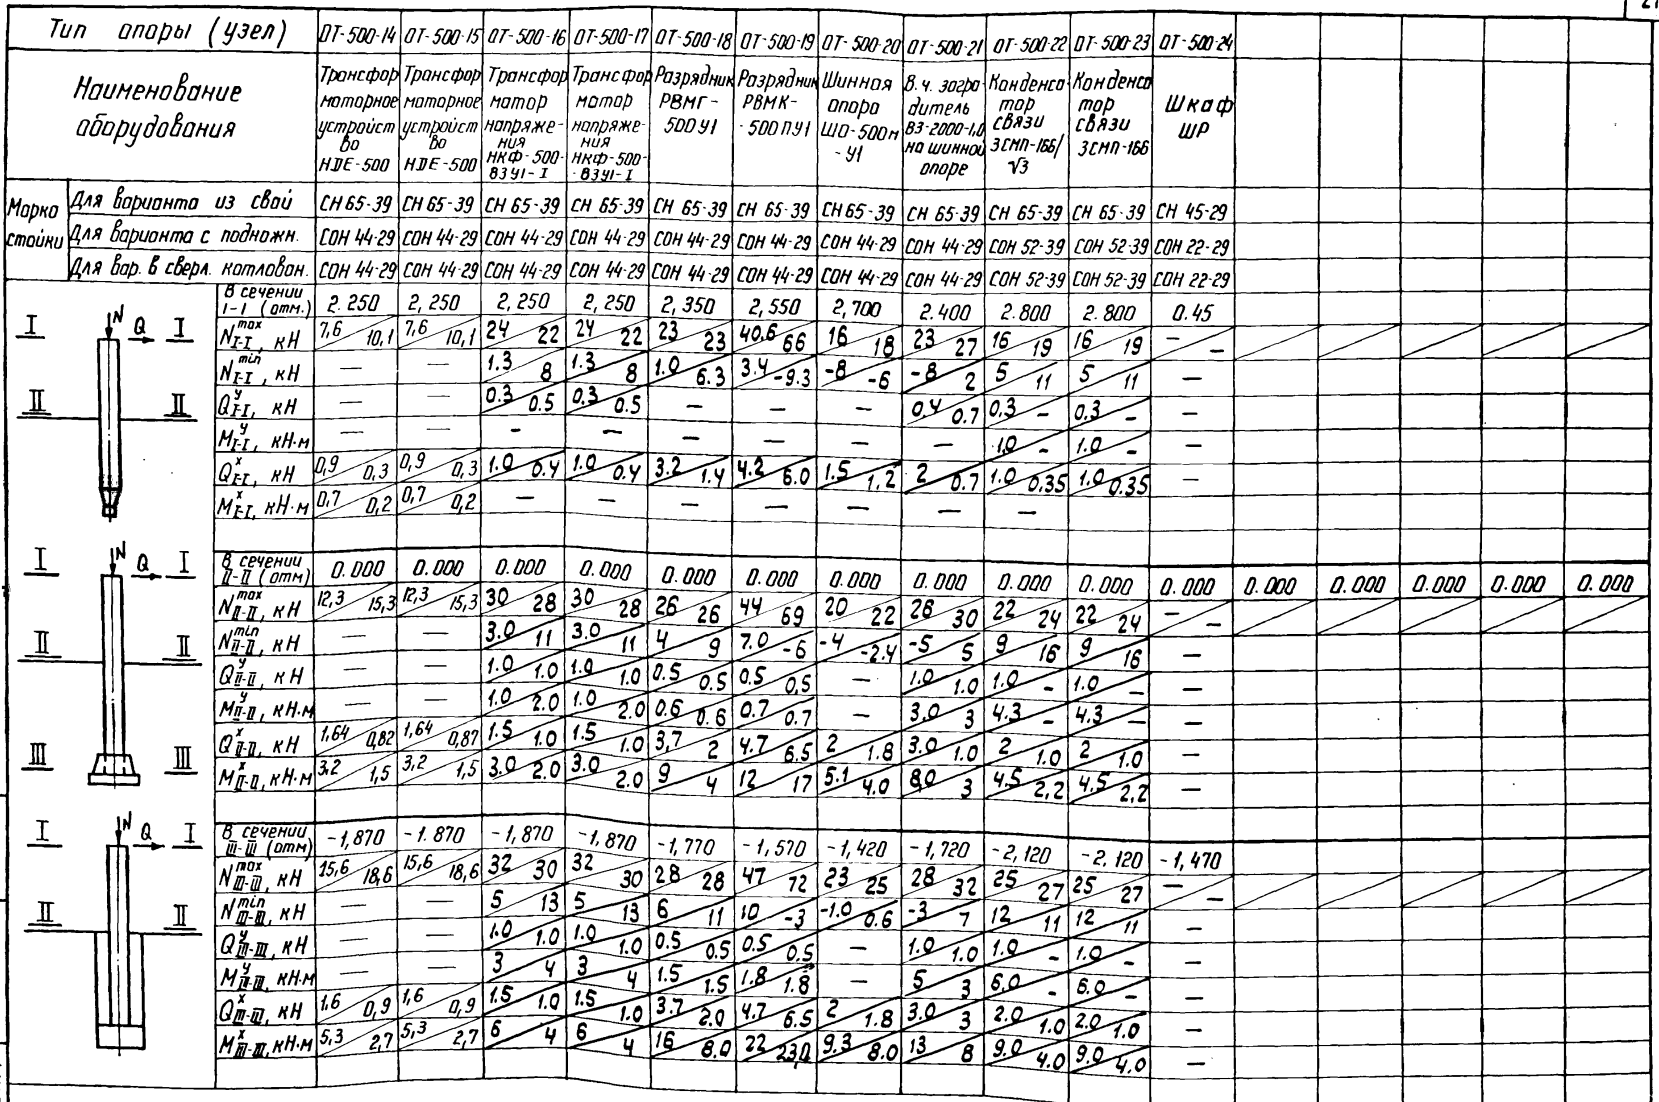 21
Тип опоры (узел) ОТ-500-14 ОТ-500-15 ОТ-500-16 ОТ-500-17 ОТ-500-18 ОТ-500-19 ОТ-500-20 ОТ-500-21 ОТ-500-22 ОТ-500-23 ОТ-500-24
Наименование оборудования
Трансформаторное устройство НДЕ-500
Трансформаторное устройство НДЕ-500
Трансформатор напряжения НКФ-500-83У1-I
Трансформатор напряжения НКФ-500-83У1-I
Разрядник РВМГ-500У1
Разрядник РВМК-500ПУ1
Шинная опора ШО-500м-У1
В.ч. заградитель ВЗ-2000-1,0 на шинной опоре
Конденсатор связи 3СМП-166/√3
Конденсатор связи 3СМП-166
Шкаф ШР
Марка стойки
Для варианта из свай СН 65-39 СН 65-39 СН 65-39 СН 65-39 СН 65-39 СН 65-39 СН 65-39 СН 65-39 СН 65-39 СН 65-39 СН 45-29
Для варианта с подножн. СОН 44-29 СОН 44-29 СОН 44-29 СОН 44-29 СОН 44-29 СОН 44-29 СОН 44-29 СОН 44-29 СОН 52-39 СОН 52-39 СОН 22-29
Для вар. в сверл. котлован. СОН 44-29 СОН 44-29 СОН 44-29 СОН 44-29 СОН 44-29 СОН 44-29 СОН 44-29 СОН 44-29 СОН 52-39 СОН 52-39 СОН 22-29
I N Q I
II II
В сечении I-I (отм.) 2.250 2,250 2,250 2,250 2,350 2,550 2,700 2.400 2.800 2.800 0.45
N max I-I, кН 7,6 10,1 7,6 10,1 24 22 24 22 23 23 40.6 66 16 18 23 27 16 19 16 19 - -
N min I-I, кН — — 1.3 8 1.3 8 1.0 6.3 3.4 -9.3 -8 -6 -8 2 5 11 5 11 —
Q y I-I, кН — — 0.3 0.5 0.3 0.5 — — — 0.4 0.7 0.3 - 0.3 - —
M y I-I, кН·м — — - — — — — — 1.0 - 1.0 - —
Q x I-I, кН 0,9 0,3 0,9 0,3 1.0 0.4 1.0 0.4 3.2 1.4 4.2 6.0 1.5 1.2 2 0.7 1.0 0.35 1.0 0.35 —
M x I-I, кН·м 0,7 0,2 0,7 0,2 — — — — — — —
I N Q I
II II
III III
В сечении II-II (отм) 0.000 0.000 0.000 0.000 0.000 0.000 0.000 0.000 0.000 0.000 0.000 0.000 0.000 0.000 0.000 0.000
N max II-II, кН 12,3 15,3 12,3 15,3 30 28 30 28 26 26 44 69 20 22 26 30 22 24 22 24 - -
N min II-II, кН — — 3.0 11 3.0 11 4 9 7.0 -6 -4 -2.4 -5 5 9 16 9 16 —
Q y II-II, кН — — 1.0 1.0 1.0 1.0 0.5 0.5 0.5 0,5 — 1.0 1.0 1.0 - 1.0 - —
M y II-II, кН·м — — 1.0 2.0 1.0 2.0 0.6 0.6 0.7 0.7 — 3.0 3 4.3 - 4.3 - —
Q x II-II, кН 1,64 0,82 1,64 0,87 1.5 1.0 1.5 1.0 3,7 2 4.7 6.5 2 1.8 3.0 1.0 2 1.0 2 1.0 —
M x II-II, кН·м 3,2 1,5 3,2 1,5 3.0 2.0 3.0 2.0 9 4 12 17 5.1 4.0 8,0 3 4.5 2,2 4.5 2,2 —
I N Q I
II II
В сечении III-III (отм) -1,870 -1.870 -1,870 -1,870 -1,770 -1,570 -1,420 -1,720 -2,120 -2.120 -1,470
N max III-III, кН 15,6 18,6 15,6 18,6 32 30 32 30 28 28 47 72 23 25 28 32 25 27 25 27 - -
N min III-III, кН — — 5 13 5 13 6 11 10 -3 -1.0 0.6 -3 7 12 11 12 11 —
Q y III-III, кН — — 1.0 1.0 1.0 1.0 0.5 0.5 0.5 0.5 — 1.0 1.0 1.0 - 1.0 - —
M y III-III, кН·м — — 3 4 3 4 1.5 1.5 1.8 1.8 — 5 3 6.0 - 6.0 - —
Q x III-III, кН 1,6 0,9 1,6 0,9 1.5 1.0 1.5 1.0 3.7 2.0 4.7 6.5 2 1.8 3.0 3 2.0 1.0 2.0 1.0 —
M x III-III, кН·м 5,3 2,7 5,3 2,7 6 4 6 4 16 8.0 22 23,0 9.3 8.0 13 8 9.0 4.0 9.0 4.0 —